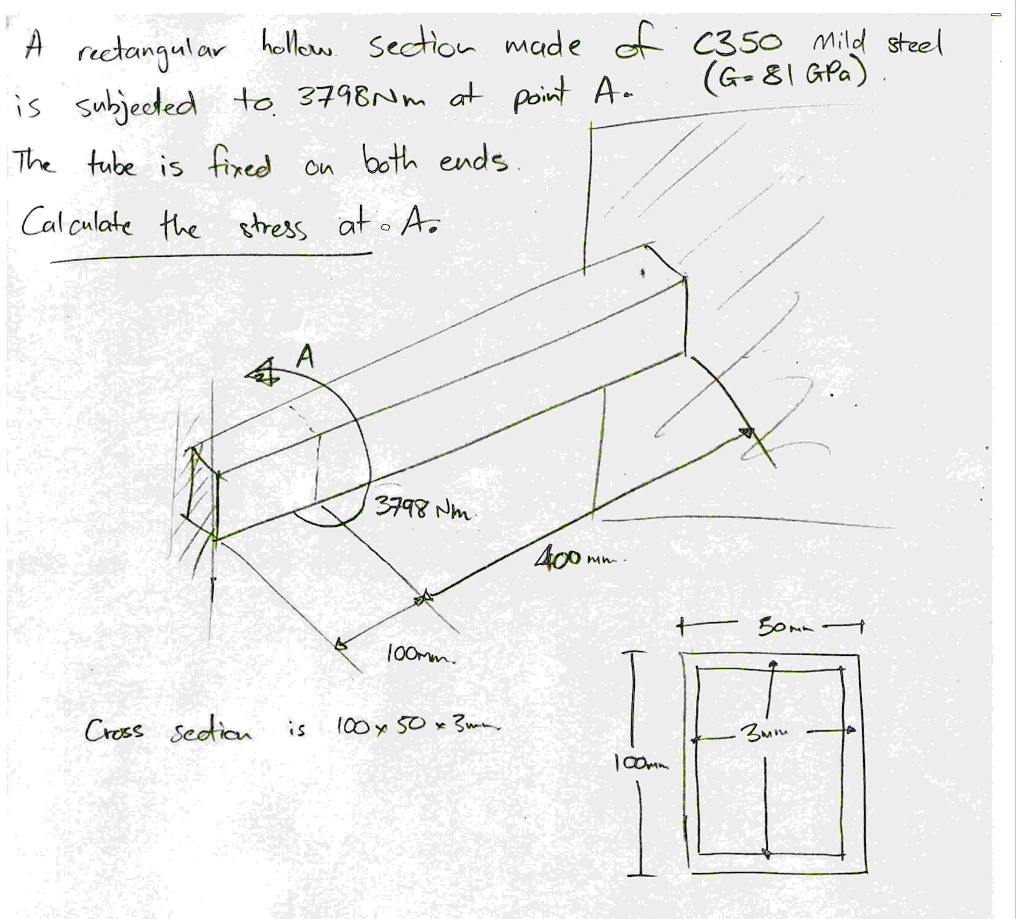 A rectangular hollow section made of C350 Mild steel
(G=81 GPa).
is subjected to 3798Nm at point A.
The tube is fixed on both ends.
Calculate the stress at A.
A
3798 Nm.
400 mm.
100mm.
50mm
Cross section is 100 x 50 x 3mm
3mm
100mm